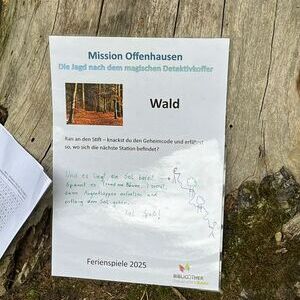 Mission Offenhausen
Die Jagd nach dem magischen Detektivkoffer
Wald
Ran an den Stift – knackst du den Geheimcode und erfährst
so, wo sich die nächste Station befindet?
Und es liegt ein Seil bereit
Spannt es rund um Bäume,
dann Augenklappen aufsetzen und
entlang dem Seil
Viel Spaß!
Ferienspiele 2025
BIBLIOTHEK